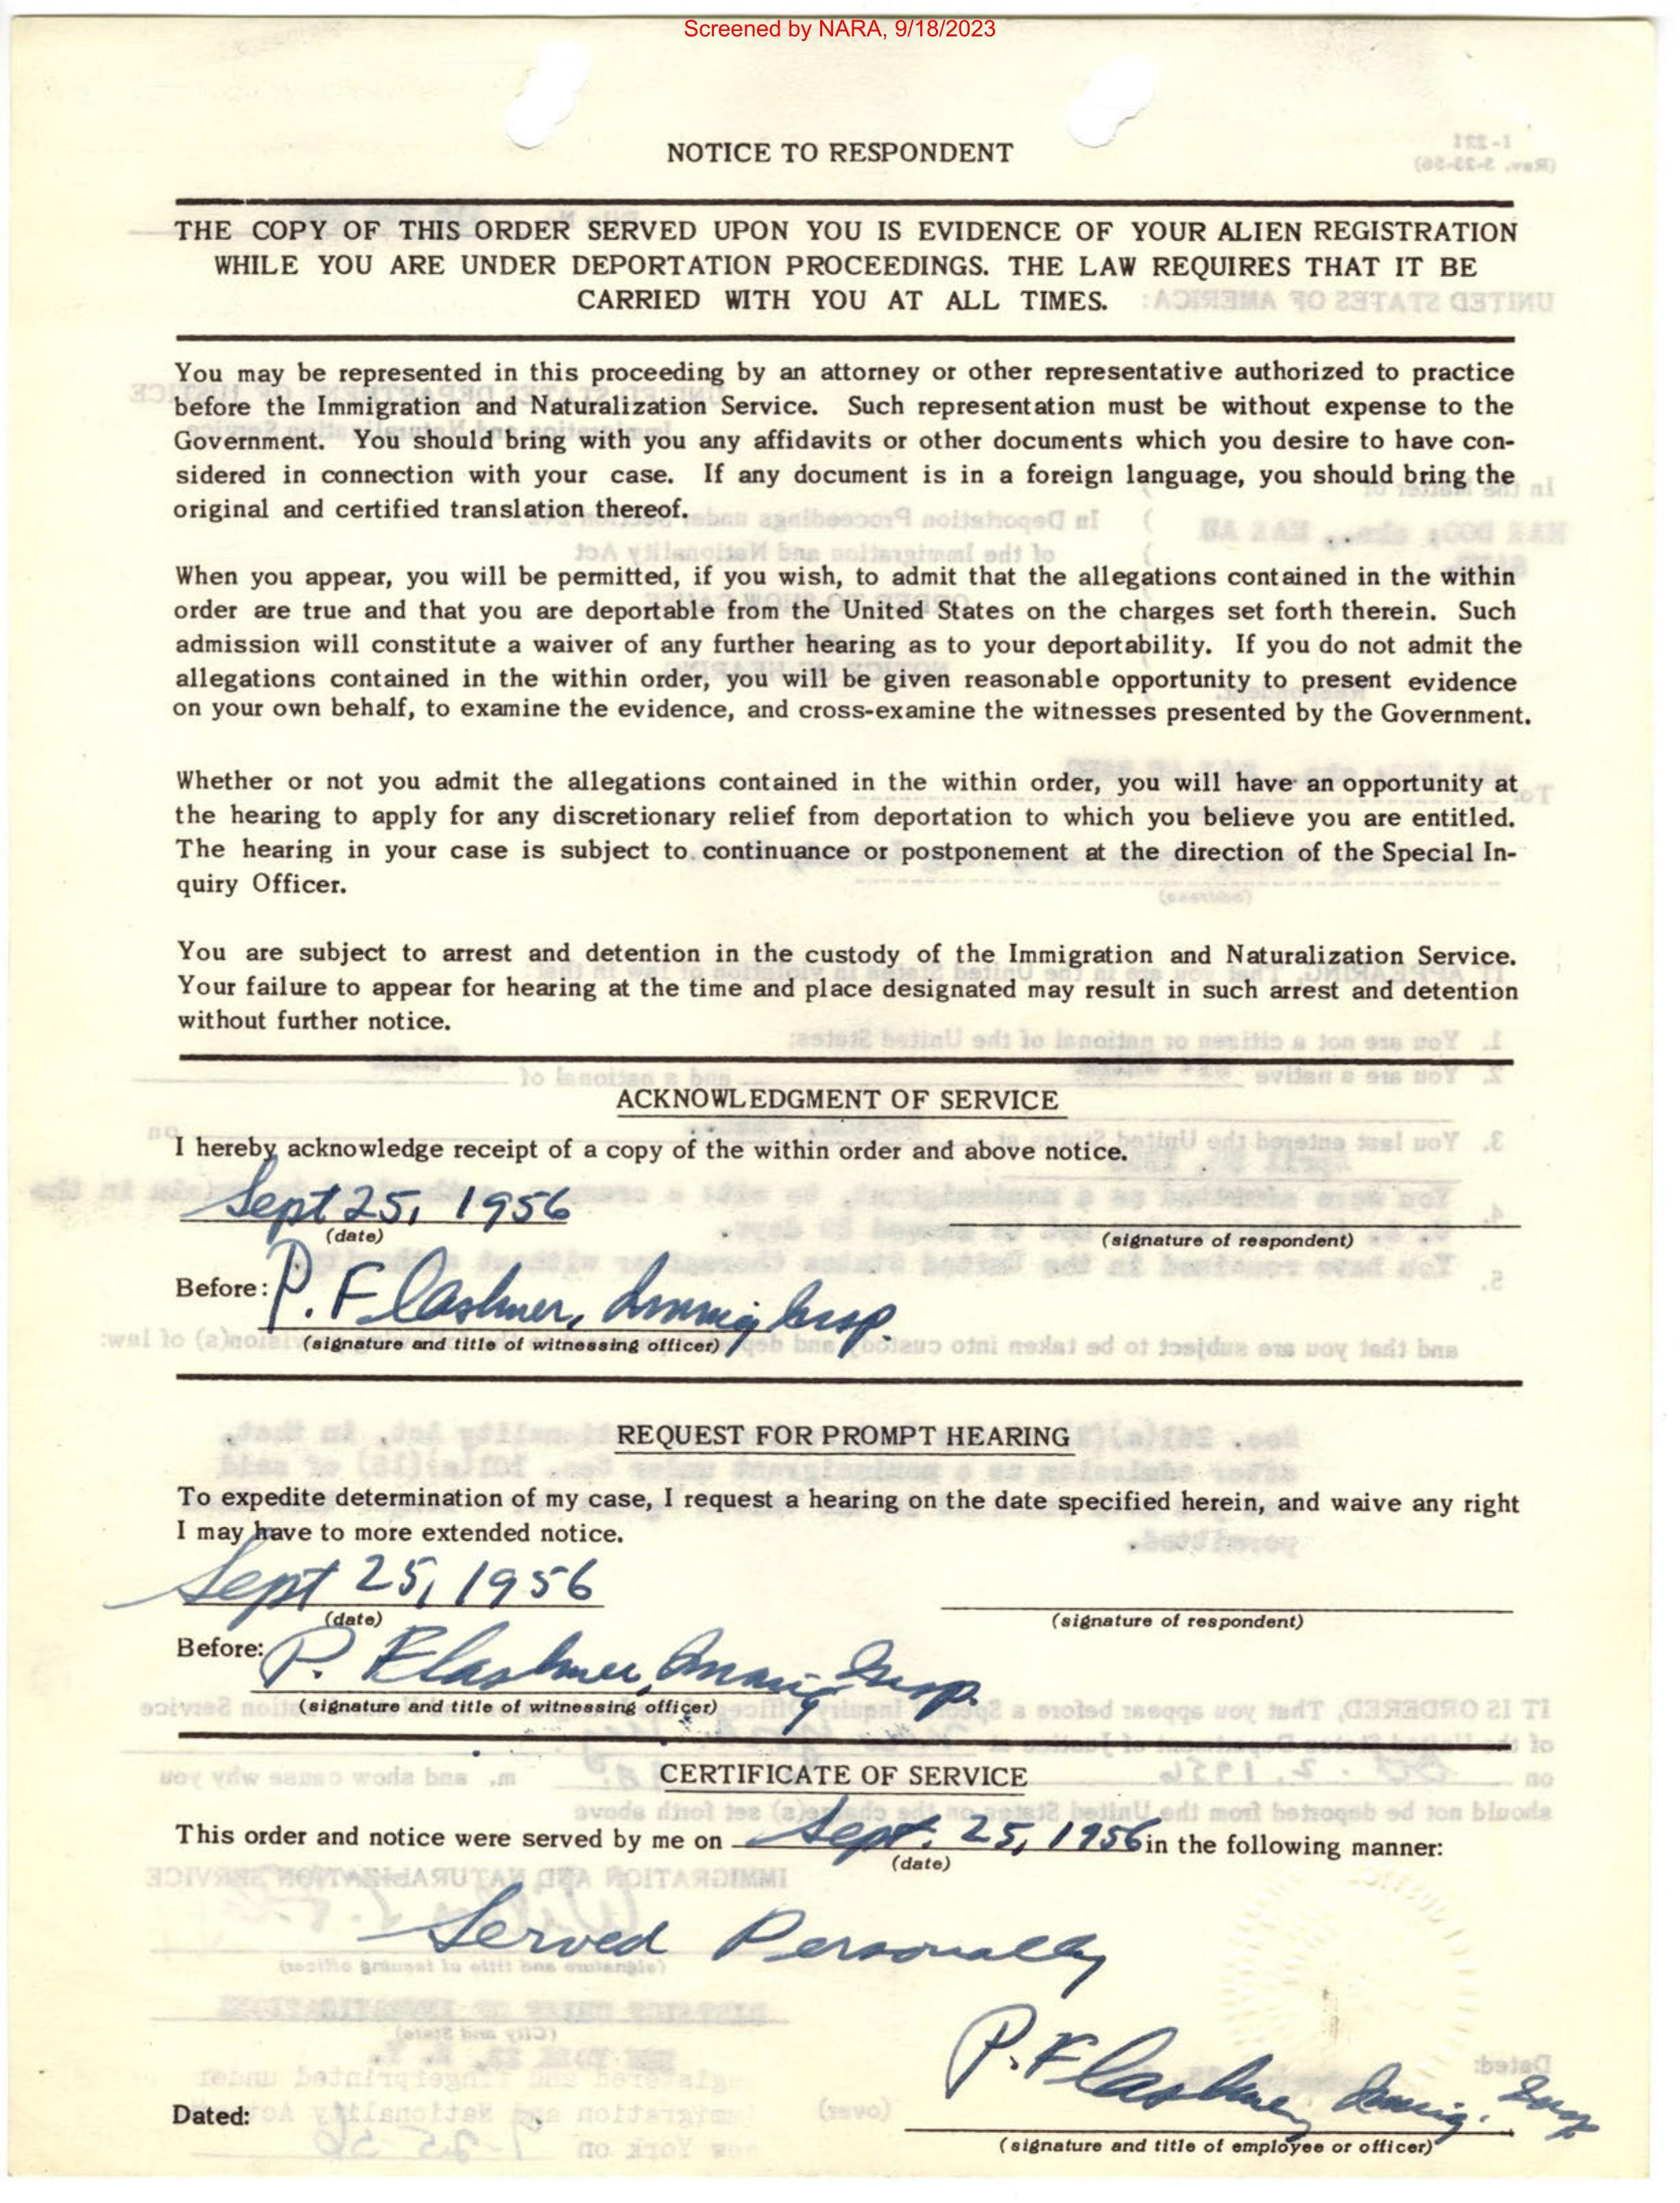 Screened by NARA, 9/18/2023
NOTICE TO RESPONDENT
I-221
(Rev. 5-23-56)
THE COPY OF THIS ORDER SERVED UPON YOU IS EVIDENCE OF YOUR ALIEN REGISTRATION
WHILE YOU ARE UNDER DEPORTATION PROCEEDINGS. THE LAW REQUIRES THAT IT BE
CARRIED WITH YOU AT ALL TIMES.
UNITED STATES OF AMERICA:
You may be represented in this proceeding by an attorney or other representative authorized to practice
before the Immigration and Naturalization Service. Such representation must be without expense to the
Government. You should bring with you any affidavits or other documents which you desire to have con-
sidered in connection with your case. If any document is in a foreign language, you should bring the
original and certified translation thereof.
When you appear, you will be permitted, if you wish, to admit that the allegations contained in the within
order are true and that you are deportable from the United States on the charges set forth therein. Such
admission will constitute a waiver of any further hearing as to your deportability. If you do not admit the
allegations contained in the within order, you will be given reasonable opportunity to present evidence
on your own behalf, to examine the evidence, and cross-examine the witnesses presented by the Government.
Whether or not you admit the allegations contained in the within order, you will have an opportunity at
the hearing to apply for any discretionary relief from deportation to which you believe you are entitled.
The hearing in your case is subject to continuance or postponement at the direction of the Special In-
quiry Officer.
You are subject to arrest and detention in the custody of the Immigration and Naturalization Service.
Your failure to appear for hearing at the time and place designated may result in such arrest and detention
without further notice.
ACKNOWLEDGMENT OF SERVICE
I hereby acknowledge receipt of a copy of the within order and above notice.
Sept 25, 1956
(date)
(signature of respondent)
Before: P. Flashner, Immig Insp.
(signature and title of witnessing officer)
REQUEST FOR PROMPT HEARING
To expedite determination of my case, I request a hearing on the date specified herein, and waive any right
I may have to more extended notice.
Sept 25, 1956
(date)
(signature of respondent)
Before: P. Flashner, Immig Insp.
(signature and title of witnessing officer)
CERTIFICATE OF SERVICE
This order and notice were served by me on Sept. 25, 1956 in the following manner:
(date)
Served Personally
P. Flashner, Immig. Insp
Dated:
(signature and title of employee or officer)